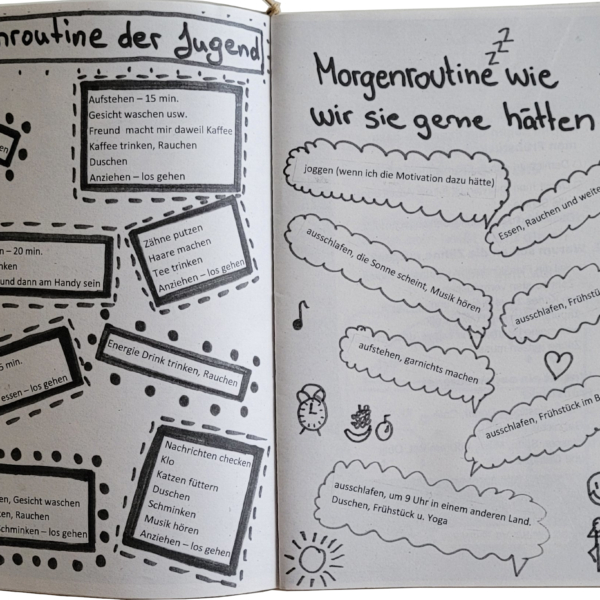 der Jugend
Aufstehen – 15 min.
Gesicht waschen usw.
Freund macht mir daweil Kaffee
Kaffee trinken, Rauchen
Duschen
Anziehen – los gehen
– 20 min.
und dann am Handy sein
Zähne putzen
Haare machen
Tee trinken
Anziehen – los gehen
min.
essen – los gehen
Energie Drink trinken, Rauchen
Gesicht waschen
Rauchen
schminken – los gehen
Nachrichten checken
Klo
Katzen füttern
Duschen
Schminken
Musik hören
Anziehen – los gehen
zzz
Morgenroutine wie
wir sie gerne hätten
joggen (wenn ich die Motivation dazu hätte)
Essen, Rauchen und
ausschlafen, die Sonne scheint, Musik hören
ausschlafen,
aufstehen, garnichts machen
ausschlafen, Frühstück im
ausschlafen, um 9 Uhr in einem anderen Land.
Duschen, Frühstück u. Yoga